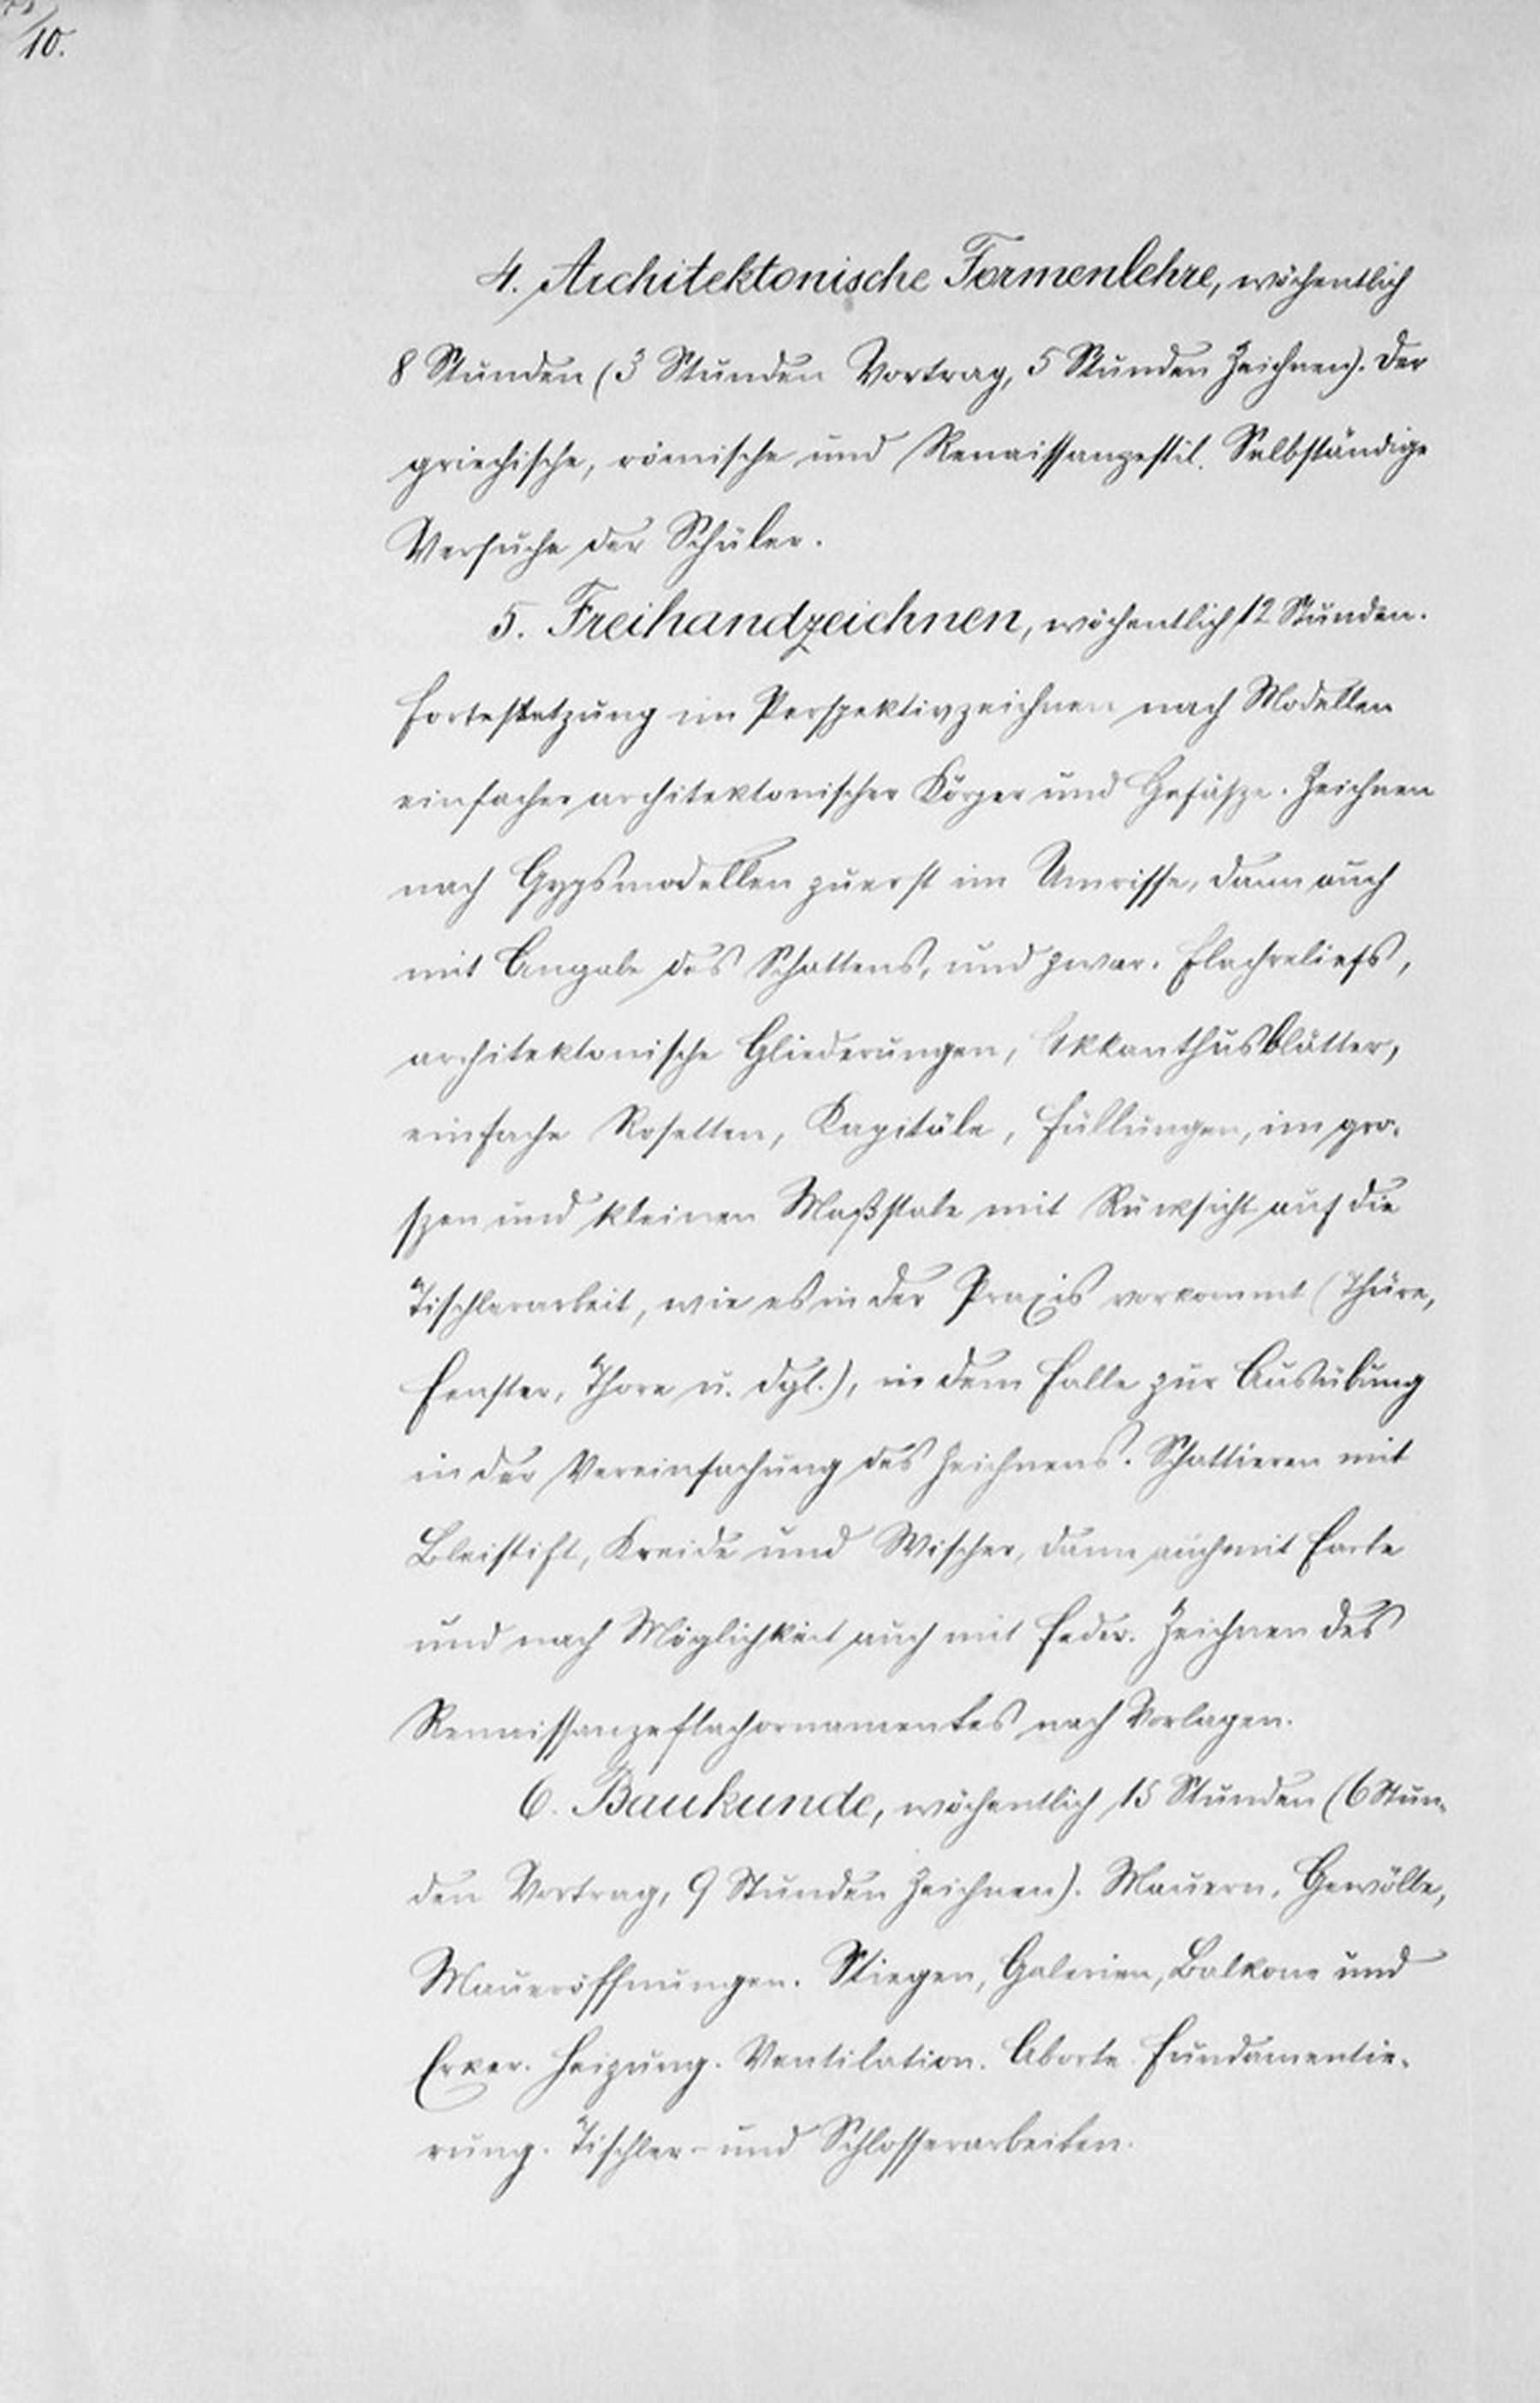 10.
4. Architektonische Formenlehre, wöchentlich
8 Stunden (3 Stunden Vortrag, 5 Stunden Zeichnen). Der
griechische, römische und Renaissanzestil. Selbständige
Versuche der Schüler.
5. Freihandzeichnen, wöchentlich 12 Stunden.
Fortsetzung im Perspektivzeichnen nach Modellen
einfacher architektonischer Körper und Gefäsze. Zeichnen
nach Gypsmodellen zuerst im Umrisse, dann auch
mit Angabe des Schattens, und zwar. Flachreliefs,
architektonische Gliederungen, Akkanthusblätter,
einfache Rosetten, Kapitäle, Füllungen, im gro-
szen und kleinen Maßstabe mit Rücksicht auf die
Tischlerarbeit, wie es in der Praxis vorkommt (Thüre,
Fenster, Thore u. dgl.), in dem Falle zur Ausübung
in der Vereinfachung des Zeichnens. Schattieren mit
Bleistift, Kreide und Wischer, dann auch mit Farbe
und nach Möglichkeit auch mit Feder. Zeichnen des
Renaissanzeflachornamentes nach Vorlagen.
6. Baukunde, wöchentlich 15 Stunden (6 Stun-
den Vortrag, 9 Stunden Zeichnen). Mauern, Gewölbe,
Maueröffnungen. Stiegen, Galerien, Balkone und
Erker. Heizung. Ventilation. Aborte. Fundamentie-
rung. Tischler- und Schlosserarbeiten.